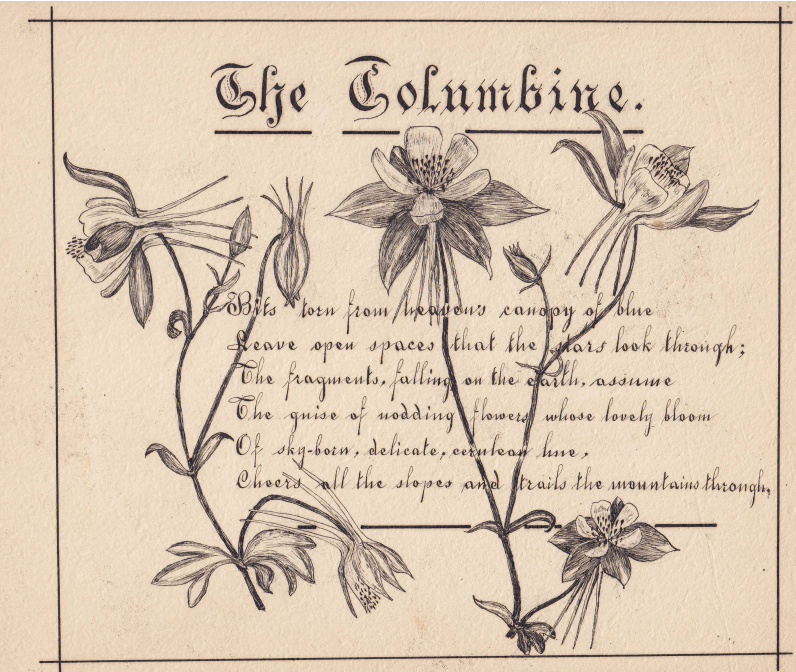 The Columbine.
Bits torn from heavens canopy of blue
Leave open spaces that the stars look through;
The fragments, falling on the earth, assume
The guise of nodding flowers whose lovely bloom
Of sky-born, delicate, cerulean hue,
Cheers all the slopes and trails the mountains through,